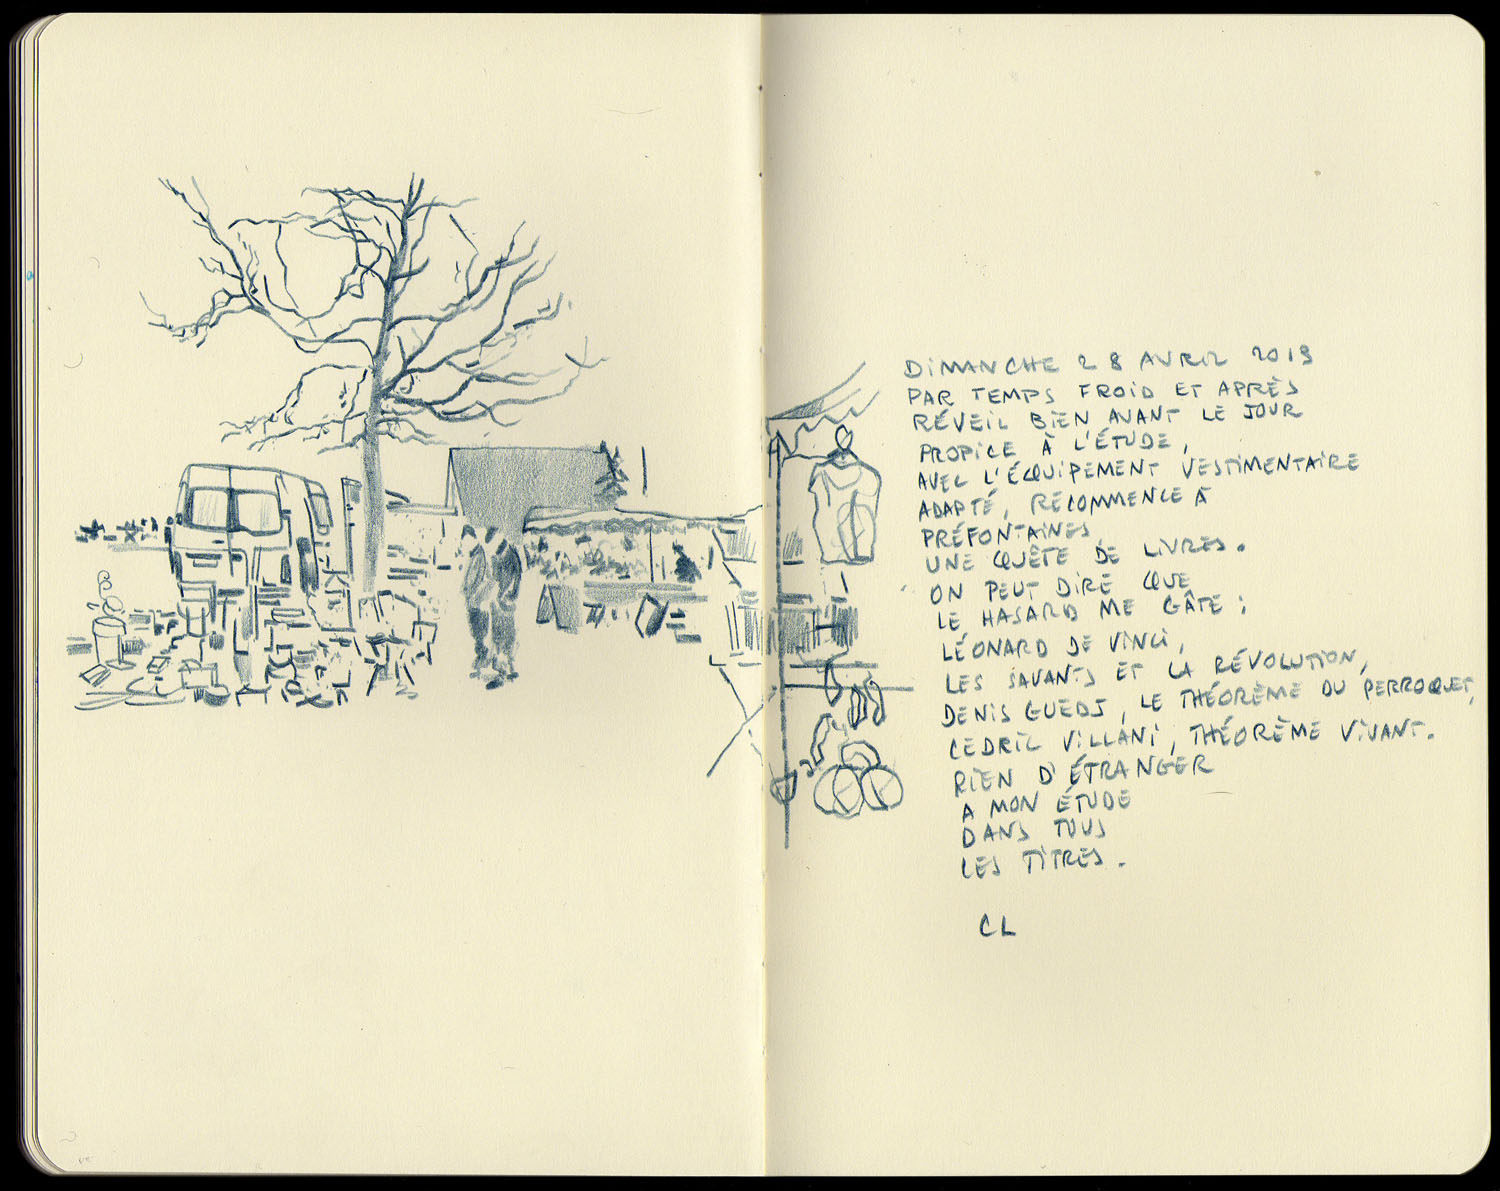 DIMANCHE 28 AVRIL 2019
PAR TEMPS FROID ET APRÈS
RÉVEIL BIEN AVANT LE JOUR
PROPICE À L'ÉTUDE,
AVEC L'ÉQUIPEMENT VESTIMENTAIRE
ADAPTÉ, RECOMMENCE À
PRÉFONTAINES
UNE QUÊTE DE LIVRES.
ON PEUT DIRE QUE
LE HASARD ME GÂTE :
LÉONARD DE VINCI,
LES SAVANTS ET LA RÉVOLUTION,
DENIS GUEDJ, LE THÉORÈME DU PERROQUET,
CEDRIC VILLANI, THÉORÈME VIVANT.
RIEN D'ÉTRANGER
A MON ÉTUDE
DANS TOUS
LES TITRES.
CL